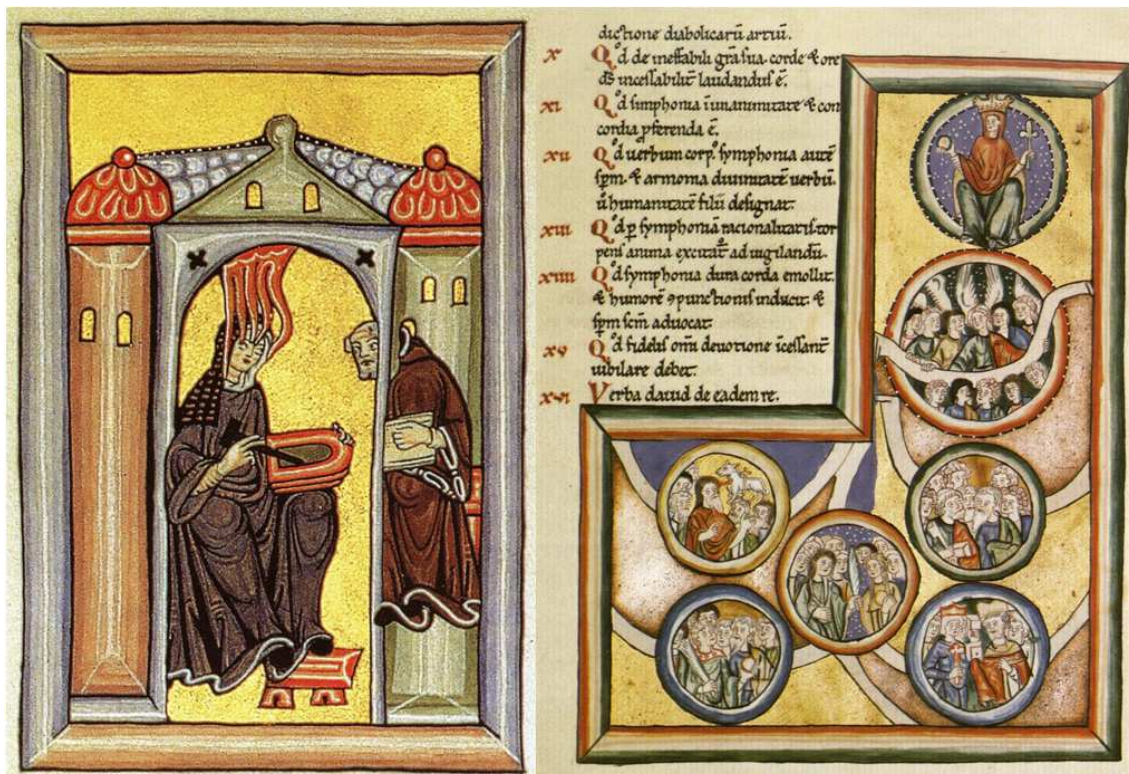 dictione diabolicarū artiū.
x Qͦd de ineffabili grā sua. corde & ore
d̄s incessabilit̄ laudandus ē.
xi Qͦd simphonia ī unanimitate & con
cordia p̄ferenda ē.
xii Qͦd uerbum corp̢. symphonia autē
sp̄m. & armonia diuinitatē uerbū.
ū humanitatē filii designat.
xiii Qͦd ꝑ symphoniā racionalitatis tor
pens anima excitat᷑ ad uigilandū.
xiiii Qͦd symphonia dura corda emollit.
& humorē ꝯpunctionis inducit. &
sp̄m sc̄m aduocat.
xv Qͦd fidelis omī deuotione īcessant̄
iubilare debet.
xvi Verba dauid de eadem re.